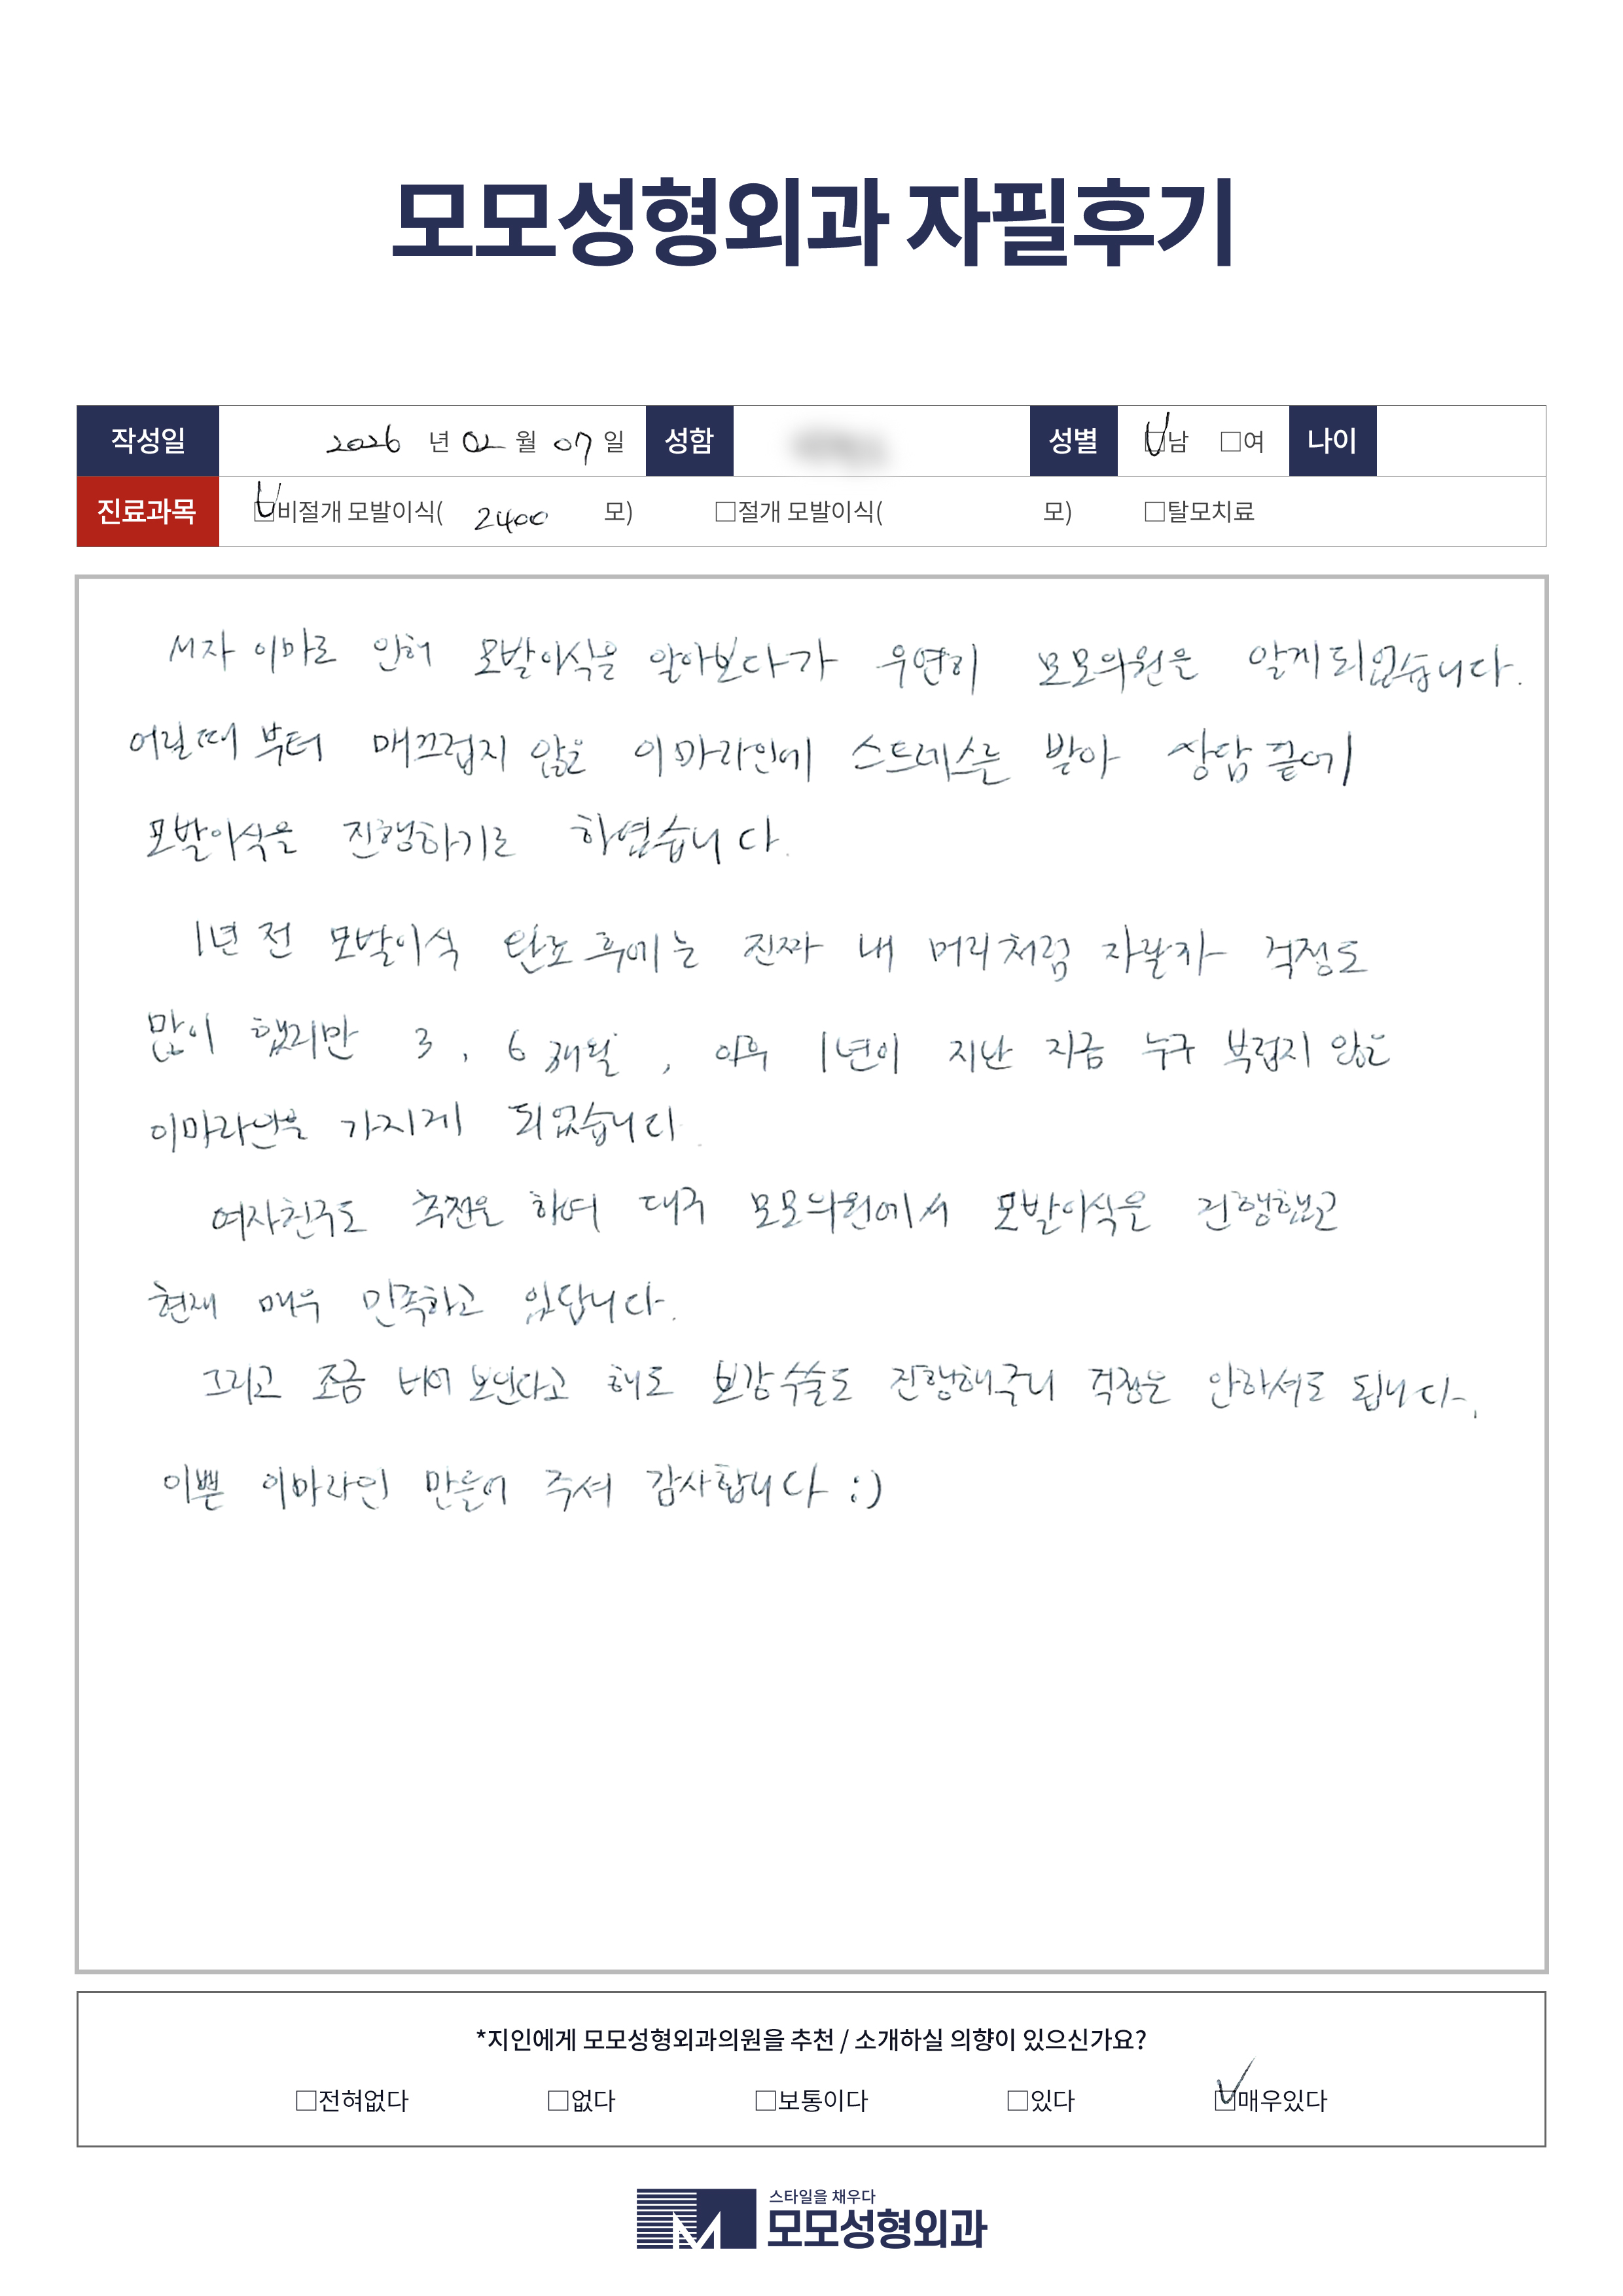 모모성형외과 자필후기
작성일 2026 년 02 월 07 일 성함 성별 ☑남 □여 나이
진료과목 ☑비절개 모발이식( 2400 모) □절개 모발이식( 모) □탈모치료
M자 이마로 인해 모발이식을 알아보다가 우연히 모모의원을 알게되었습니다.
어릴때 부터 매끄럽지 않은 이마라인에 스트레스를 받아 상담 끝에
모발이식을 진행하기로 하였습니다.
1년 전 모발이식 후에는 진짜 내 머리처럼 자랄까 걱정도
많이 했지만 3, 6개월, 이후 1년이 지난 지금 누구 부럽지 않은
이마라인을 가지게 되었습니다.
여자친구도 추천을 하여 대구 모모의원에서 모발이식을 진행했고
현재 매우 만족하고 있답니다.
그리고 조금 비어 보인다고 해도 보강수술도 진행해주니 걱정은 안하셔도 됩니다.
이쁜 이마라인 만들어 주셔 감사합니다 :)
*지인에게 모모성형외과의원을 추천 / 소개하실 의향이 있으신가요?
□전혀없다 □없다 □보통이다 □있다 ☑매우있다
스타일을 채우다
모모성형외과